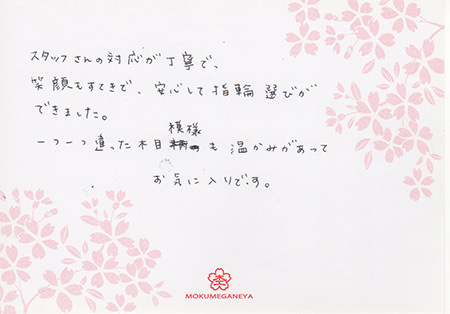 スタッフさんの対応が丁寧で、
笑顔もすてきで、安心して指輪選びが
できました。
一つ一つ違った木目模様も温かみがあって
お気に入りです。
MOKUMEGANEYA